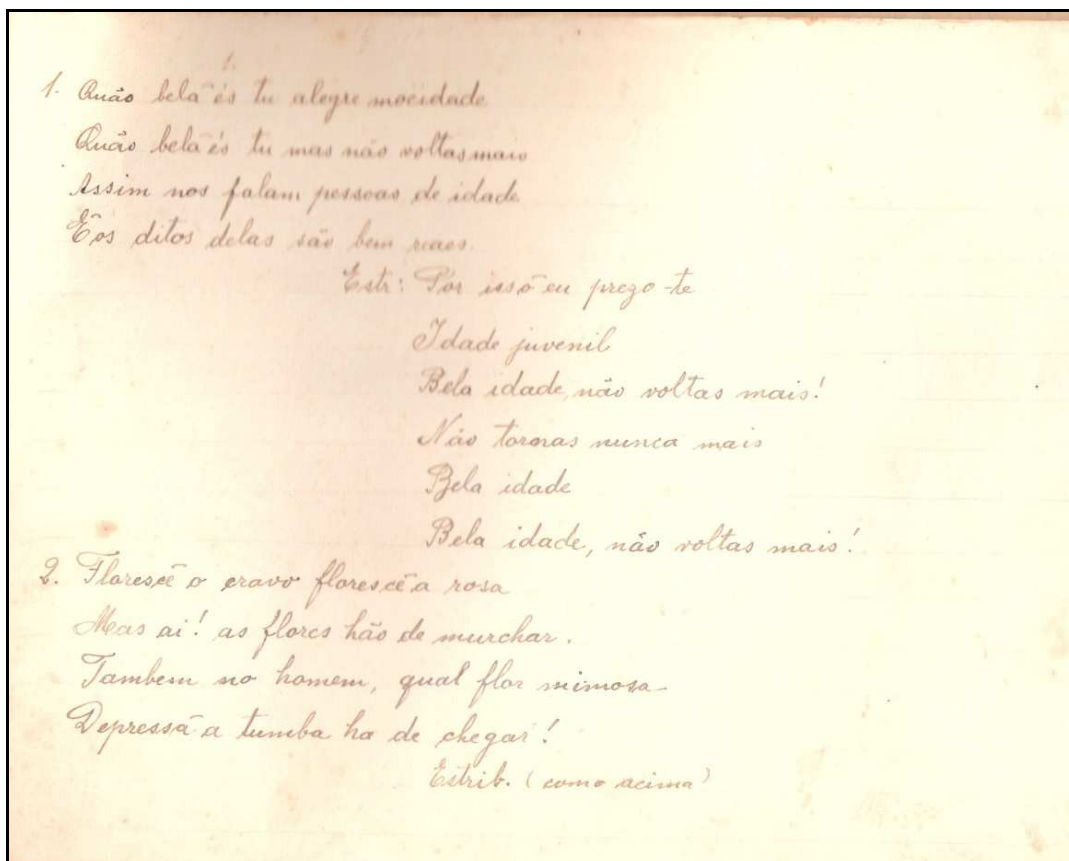 1. Quão bela és tu alegre mocidade
Quão bela és tu mas não voltas mais
Assim nos falam pessoas de idade
E os ditos delas são bem reaes.
Estr: Por isso eu prezo-te
Idade juvenil
Bela idade, não voltas mais!
Não tornas nunca mais
Bela idade
Bela idade, não voltas mais!
2. Floresce o cravo floresce a rosa
Mas ai! as flores hão de murchar.
Tambem no homem, qual flor mimosa
Depressa a tumba ha de chegar!
Estrib. (como acima)